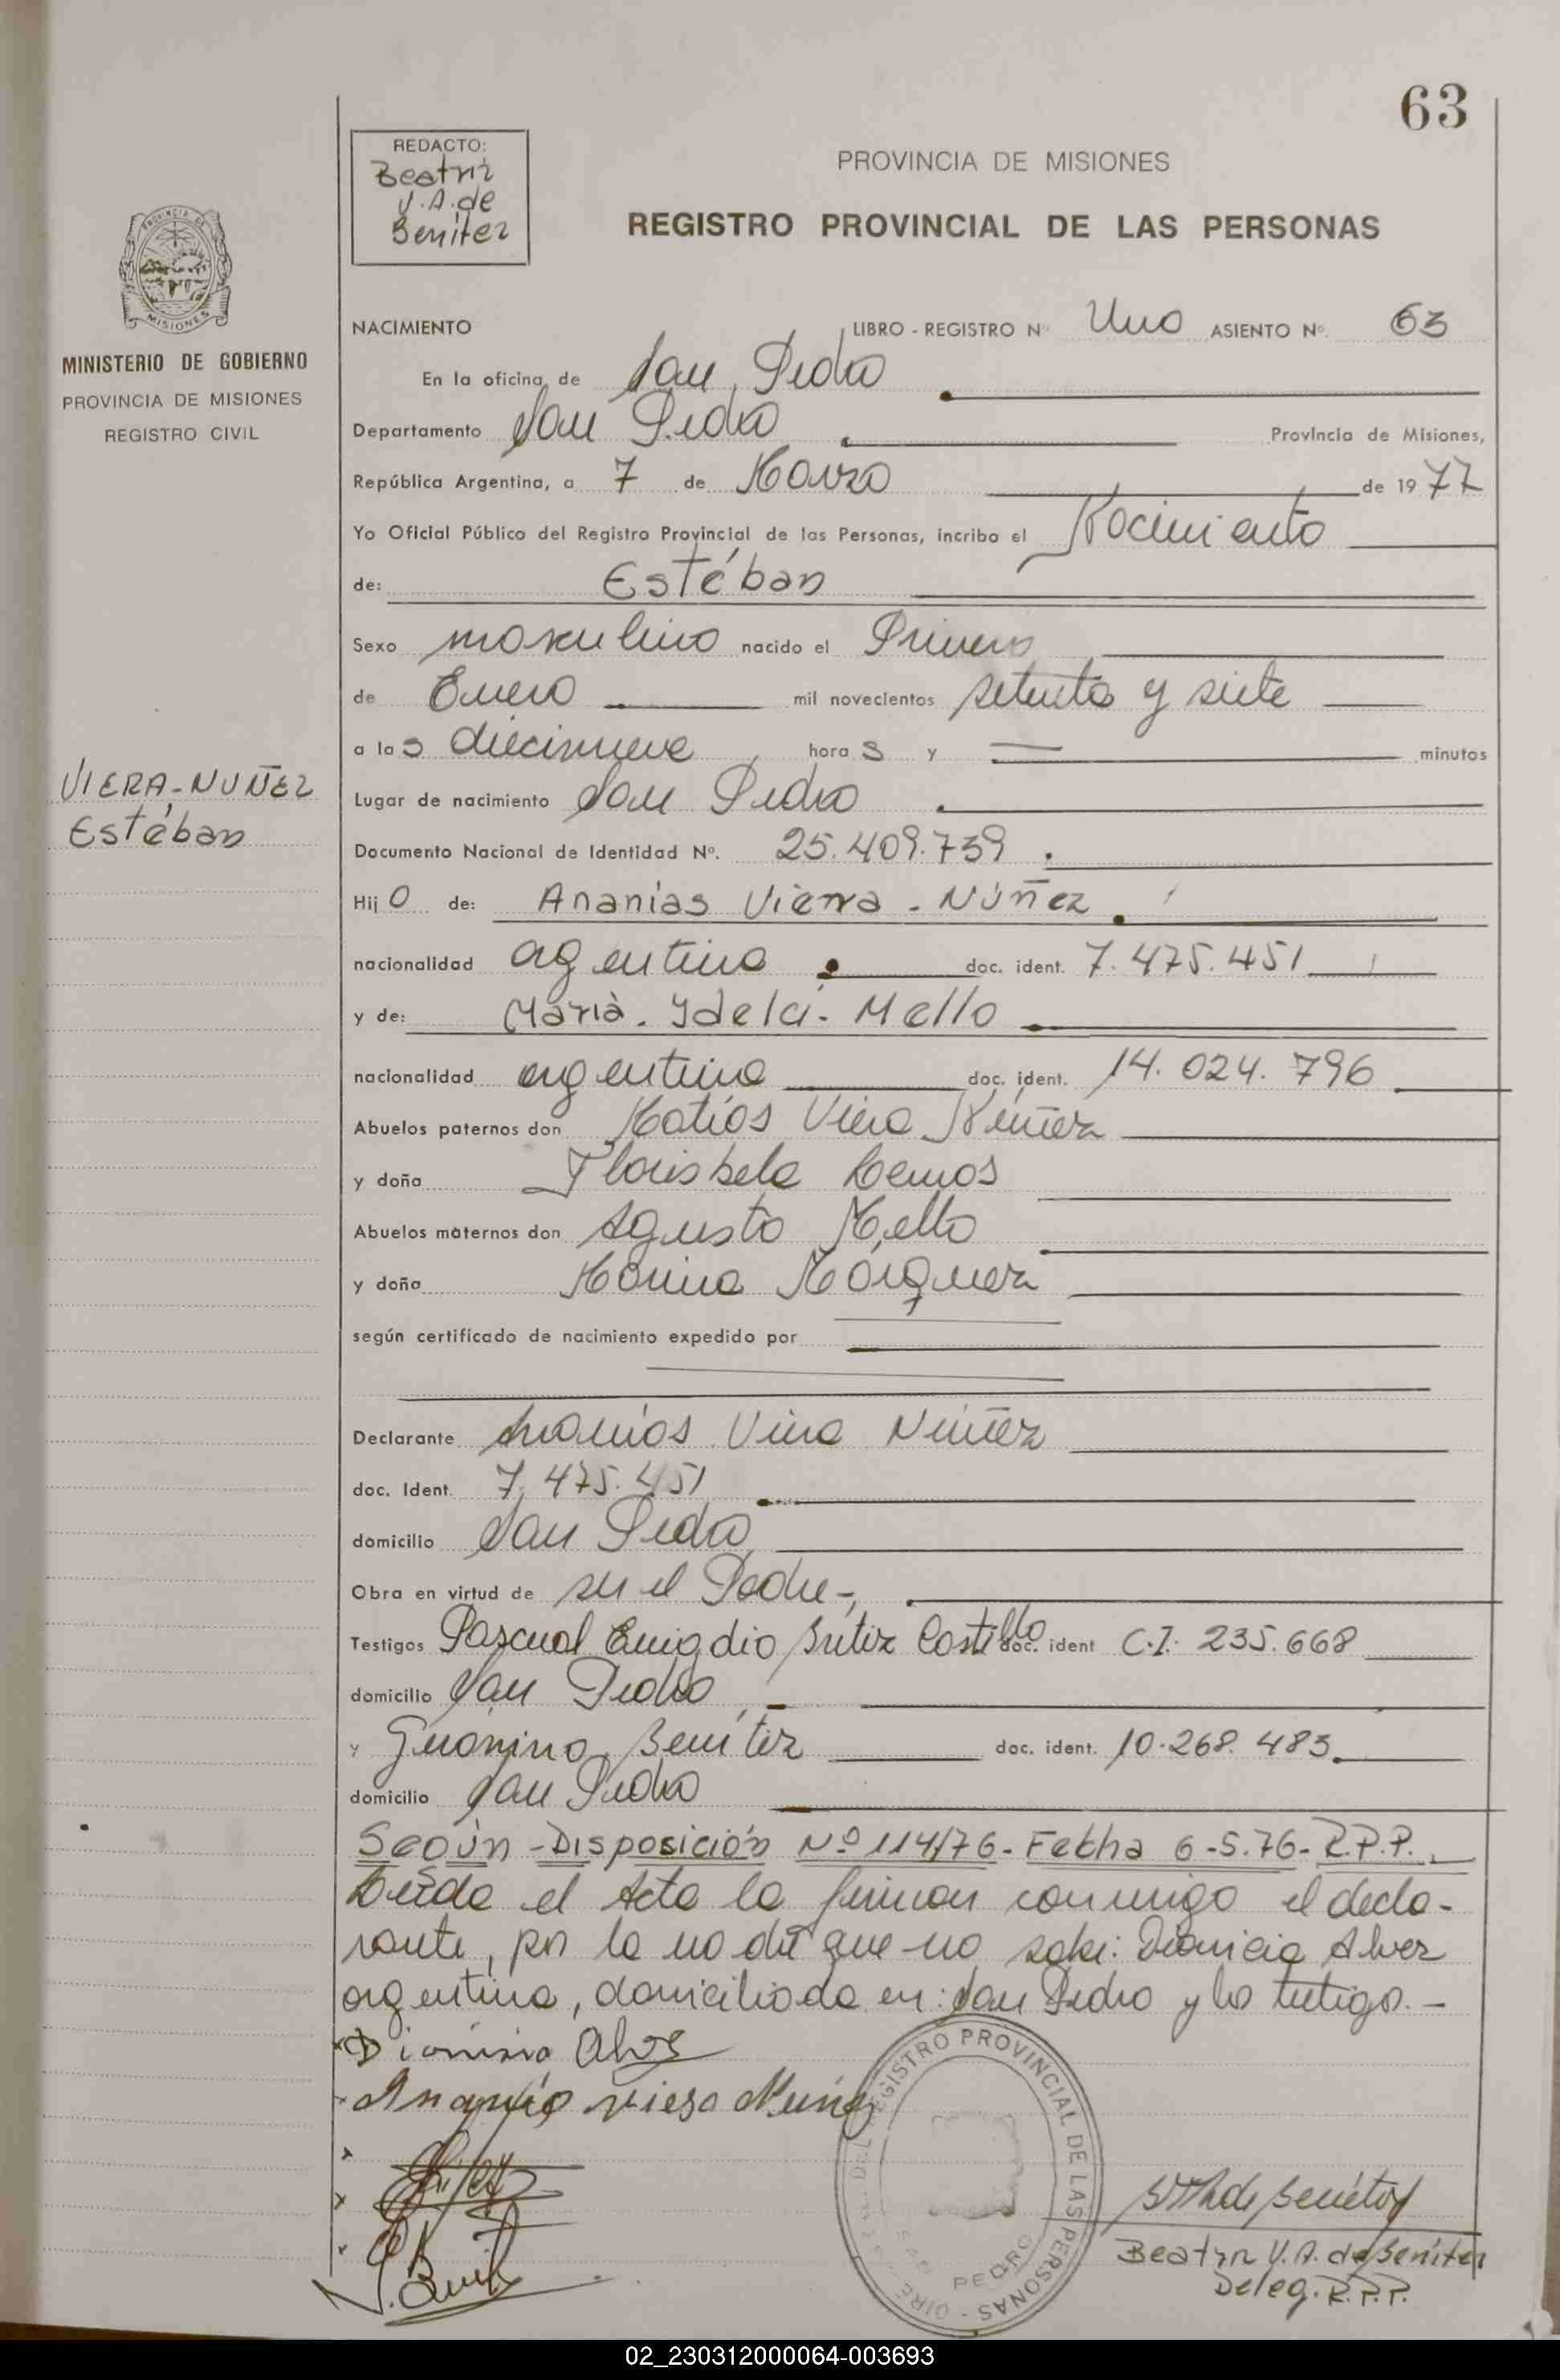 63
REDACTO:
Beatriz
V. A. de
Benítez
PROVINCIA DE MISIONES
REGISTRO PROVINCIAL DE LAS PERSONAS
PROVINCIA DE
MISIONES
MINISTERIO DE GOBIERNO
PROVINCIA DE MISIONES
REGISTRO CIVIL
NACIMIENTO LIBRO - REGISTRO Nº Uno ASIENTO Nº. 63
En la oficina de San Pedro
Departamento San Pedro Provincia de Misiones,
República Argentina, a 7 de Marzo de 1977
Yo Oficial Público del Registro Provincial de las Personas, incribo el Nacimiento
de: Estéban
Sexo masculino nacido el Primero
de Enero mil novecientos setenta y siete
a las diecinueve horas y — minutos
VIERA-NUÑEZ
Estéban
Lugar de nacimiento San Pedro
Documento Nacional de Identidad Nº. 25.409.739.
Hijo de: Ananías Viera - Núñez.
nacionalidad argentina doc. ident. 7.475.451
y de: María. Ydelci. Mello
nacionalidad argentina doc. ident. 14.024.796
Abuelos paternos don Matías Viera Núñez
y doña Florisbela Lemos
Abuelos maternos don Agusto Mello
y doña Marina Márquez
según certificado de nacimiento expedido por
Declarante Ananías Viera Núñez
doc. Ident. 7.475.451
domicilio San Pedro
Obra en virtud de ser el Padre-,
Testigos Pascual Emigdio Britez Castillo doc. ident C.I. 235.668
domicilio San Pedro
y Gerónimo Benítez doc. ident. 10.268.483.
domicilio San Pedro
Según-Disposición Nº 114/76-Fecha 6-5.76-R.P.P.
Leída el Acta la firman conmigo el decla-
rante, por la madre que no sabe: Dionicia Alvez
argentina, domiciliada en: San Pedro y los testigos.-
Dionisia Alves
Ananías viera Nuñez
REGISTRO PROVINCIAL DE LAS PERSONAS
SAN PEDRO
Beatriz V. A. de Benítez
Deleg. R.P.P.
02_230312000064-003693